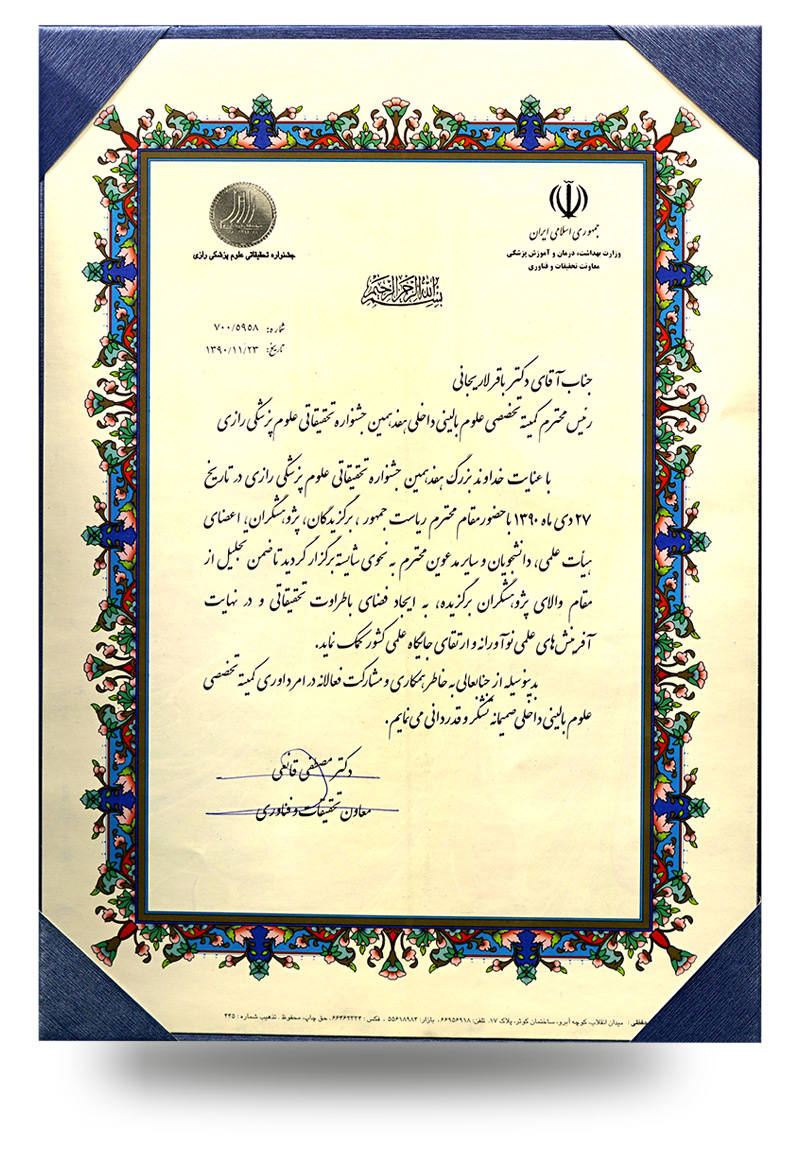 جمهوری اسلامی ایران
وزارت بهداشت، درمان و آموزش پزشکی
معاونت تحقیقات و فناوری
جشنواره تحقیقاتی علوم پزشکی رازی
بسم الله الرحمن الرحیم
شماره: ۷۰۰/۵۹۵۸
تاریخ: ۱۳۹۰/۱۱/۲۳
جناب آقای دکتر باقر لاریجانی
رئیس محترم کمیته تخصصی علوم بالینی داخلی هفدهمین جشنواره تحقیقاتی علوم پزشکی رازی
با عنایت خداوند بزرگ هفدهمین جشنواره تحقیقاتی علوم پزشکی رازی در تاریخ
۲۷ دی ماه ۱۳۹۰ با حضور مقام محترم ریاست جمهور، برگزیدگان، پژوهشگران، اعضای
هیأت علمی، دانشجویان و سایر مدعوین محترم به نحوی شایسته برگزار گردید تا ضمن تجلیل از
مقام والای پژوهشگران برگزیده، به ایجاد فضای باطراوت تحقیقاتی و در نهایت
آفرینش‌های علمی نوآورانه و ارتقای جایگاه علمی کشور کمک نماید.
بدینوسیله از جنابعالی به خاطر همکاری و مشارکت فعالانه در امر داوری کمیته تخصصی
علوم بالینی داخلی صمیمانه تشکر و قدردانی می‌نمایم.
دکتر مصطفی قانعی
معاون تحقیقات و فناوری
میدان انقلاب، کوچه آبرو، ساختمان کوثر، پلاک ۱۷. تلفن: ۶۶۹۵۶۹۱۸ ، بازار: ۵۵۶۱۸۹۸۲ ، فکس: ۶۶۴۶۲۲۲۳ . حق چاپ، محفوظ . تذهیب شماره: ۲۳۵